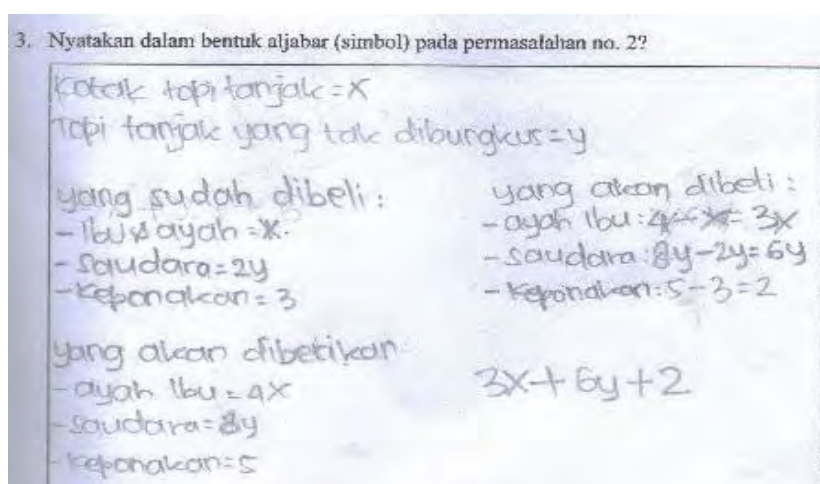 3. Nyatakan dalam bentuk aljabar (simbol) pada permasalahan no. 2?
Kotak topi tanjak = x
Topi tanjak yang tak dibungkus = y
yang sudah dibeli :
- Ibu & ayah = x.
- Saudara = 2y
- Keponakan = 3
yang akan dibelikan
- ayah Ibu = 4x
- Saudara = 8y
- keponakan = 5
yang akan dibeli :
- ayah Ibu : 4x - x = 3x
- saudara : 8y - 2y = 6y
- keponakan : 5 - 3 = 2
3x + 6y + 2